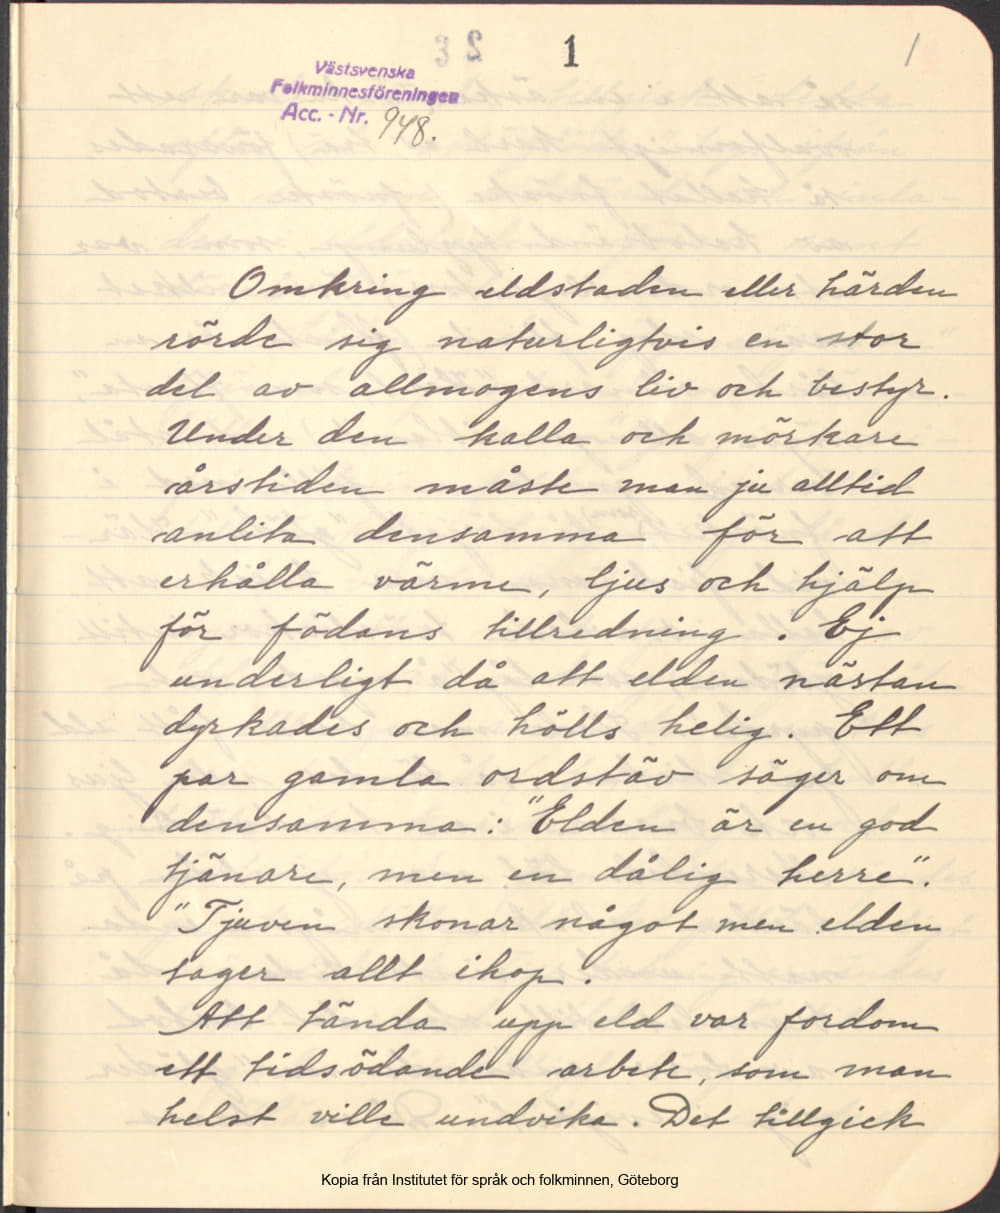 1
1
Västsvenska
Folkminnesföreningen
Acc. - Nr. 948.
Omkring eldstaden eller härden
rörde sig naturligtvis en stor
del av allmogens liv och bestyr.
Under den kalla och mörkare
årstiden måste man ju alltid
anlita densamma för att
erhålla värme, ljus och hjälp
för födans tillredning. Ej
underligt då att elden nästan
dyrkades och hölls helig. Ett
par gamla ordstäv säger om
densamma: "Elden är en god
tjänare, men en dålig herre".
"Tjuven skonar något men elden
tager allt ihop.
Att tända upp eld var fordom
ett tidsödande arbete, som man
helst ville undvika. Det tillgick
Kopia från Institutet för språk och folkminnen, Göteborg